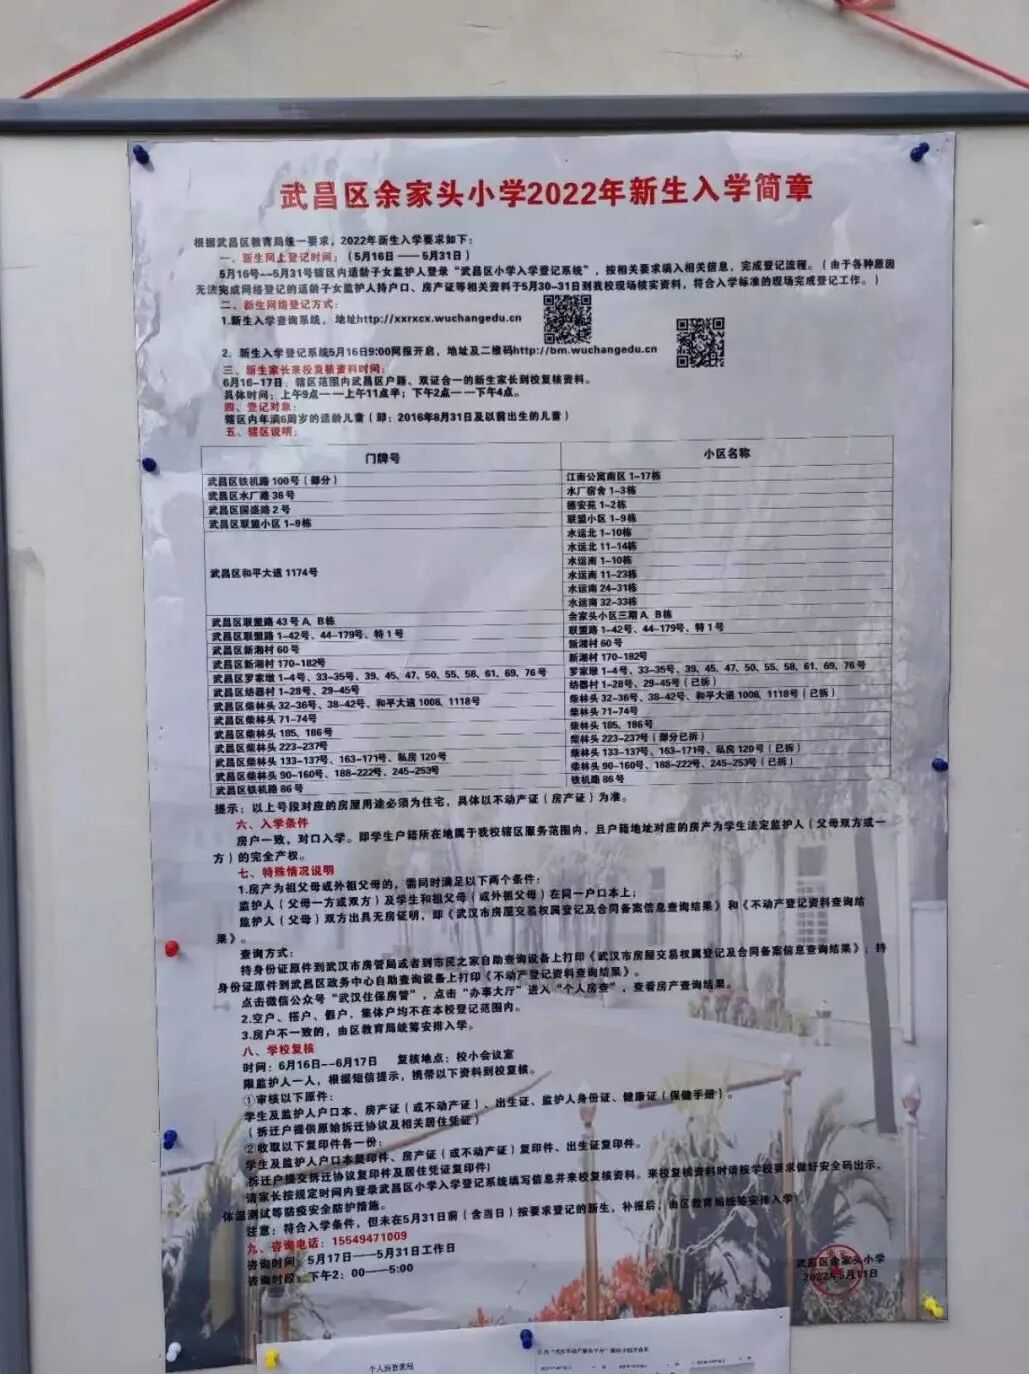 武昌区余家头小学2022年新生入学简章
根据武昌区教育局统一要求，2022年新生入学要求如下：
一、新生网上登记时间：（5月16日——5月31日）
5月16号--5月31号辖区内适龄子女监护人登录“武昌区小学入学登记系统”，按相关要求填入相关信息，完成登记流程。（由于各种原因
无法完成网络登记的适龄子女监护人持户口、房产证等相关资料于5月30-31日到我校现场核实资料，符合入学标准的现场完成登记工作。）
二、新生网络登记方式：
1.新生入学查询系统， 地址http://xxrxcx.wuchangedu.cn
2．新生入学登记系统5月16日9:00网报开启，地址及二维码http://bm.wuchangedu.cn
三、新生家长来校复核资料时间：
6月16-17日，辖区范围内武昌区户籍、双证合一的新生家长到校复核资料。
具体时间：上午9点——上午11点半；下午2点——下午4点。
四、登记对象：
辖区内年满6周岁的适龄儿童（即：2016年8月31日及以前出生的儿童）
五、辖区说明：
门牌号 小区名称
武昌区铁机路 100号（部分） 江南公寓南区 1-17栋
武昌区水厂路 36号 水厂宿舍 1-3栋
武昌区国盛路 2 号 德安苑 1-2栋
武昌区联盟小区 1-9栋 联盟小区 1-9栋
武昌区和平大道 1174号 水运北 1-10栋
水运北 11-14栋
水运南 1-10栋
水运南 11-23栋
水运南 24-31栋
水运南 32-33栋
武昌区联盟路 43号 A、B栋 余家头小区三期 A、B栋
武昌区联盟路 1-42号、44-179号、特 1 号 联盟路 1-42号、44-179号、特 1 号
武昌区新湘村 60号 新湘村 60号
武昌区新湘村 170-182号 新湘村 170-182号
武昌区罗家墩 1-4号、33-35号、39、45、47、50、55、58、61、69、76号 罗家墩 1-4号、33-35号、39、45、47、50、55、58、61、69、76号
武昌区纺器村 1-28号、29-45号 纺器村 1-28号、29-45号（已拆）
武昌区柴林头 32-36号、38-42号、和平大道 1008、1118号 柴林头 32-36号、38-42号、和平大道 1008、1118号（已拆）
武昌区柴林头 71-74号 柴林头 71-74号
武昌区柴林头 185、186号 柴林头 185、186号
武昌区柴林头 223-237号 柴林头 223-237号（部分已拆）
武昌区柴林头 133-137号、163-171号、私房 120号 柴林头 133-137号、163-171号、私房 120号（已拆）
武昌区柴林头 90-160号、188-222号、245-253号 柴林头 90-160号、188-222号、245-253号（已拆）
武昌区铁机路 86号 铁机路 86号
提示：以上号段对应的房屋用途必须为住宅，具体以不动产证（房产证）为准。
六、入学条件
房户一致，对口入学。即学生户籍所在地属于我校辖区服务范围内，且户籍地址对应的房产为学生法定监护人（父母双方或一
方）的完全产权。
七、特殊情况说明
1.房产为祖父母或外祖父母的，需同时满足以下两个条件：
监护人（父母一方或双方）及学生和祖父母（或外祖父母）在同一户口本上；
监护人（父母）双方出具无房证明，即《武汉市房屋交易权属登记及合同备案信息查询结果》和《不动产登记资料查询结
果》。
查询方式：
持身份证原件到武汉市房管局或者到市民之家自助查询设备上打印《武汉市房屋交易权属登记及合同备案信息查询结果》；持
身份证原件到武昌区政务中心自助查询设备上打印《不动产登记资料查询结果》。
点击微信公众号“武汉住保房管”，点击“办事大厅”进入“个人房查”，查看房产查询结果。
2.空户、搭户、假户、集体户均不在本校登记范围内。
3.房户不一致的，由区教育局统筹安排入学。
八、学校复核
时间：6月16日--6月17日 复核地点：校小会议室
限监护人一人，根据短信提示，携带以下资料到校复核。
①审核以下原件：
学生及监护人户口本、房产证（或不动产证）、出生证、监护人身份证、健康证（保健手册）。
（拆迁户提供原始拆迁协议及相关居住凭证）
②收取以下复印件各一份：
学生及监护人户口本复印件、房产证（或不动产证）复印件、出生证复印件。
（拆迁户提交拆迁协议复印件及居住凭证复印件）
请家长按规定时间内登录武昌区小学入学登记系统填写信息并来校复核资料。来校复核资料时请按学校要求做好安全码出示、
体温测试等防疫安全防护措施。
注意：符合入学条件，但未在5月31日前（含当日）按要求登记的新生，补报后，由区教育局统筹安排入学！
九、咨询电话：15549471009
咨询时间：5月17日——5月31日工作日
咨询时段：下午2：00——5:00
武昌区余家头小学
2022年5月11日